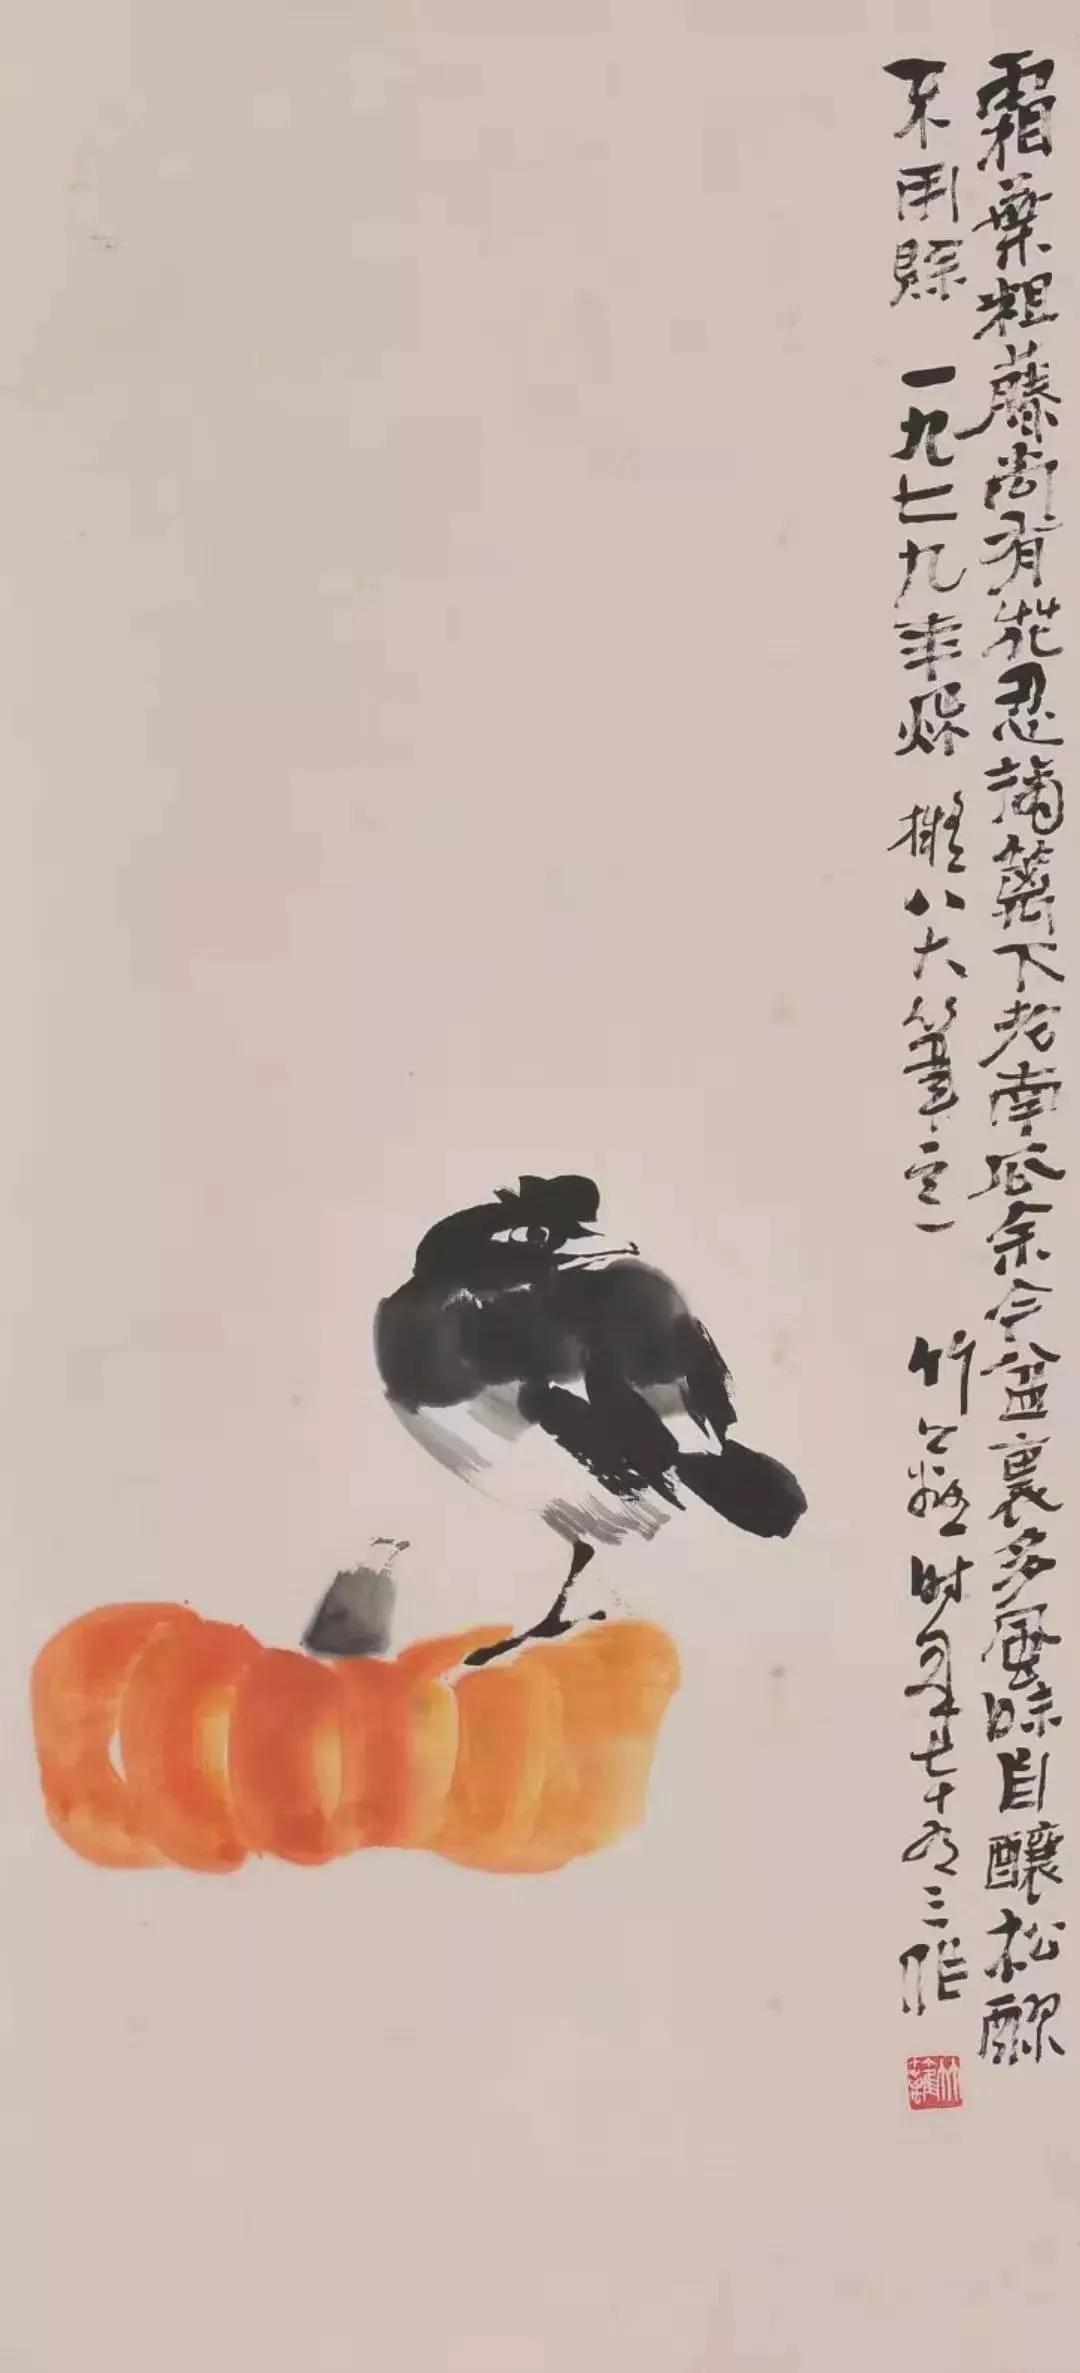 霜葉粗藤尚有花忍摘籬下老南瓜余今盆裏多風味自釀松醪
不用賒 一九七九年秋 擬八大筆意 竹 時年七十有三作